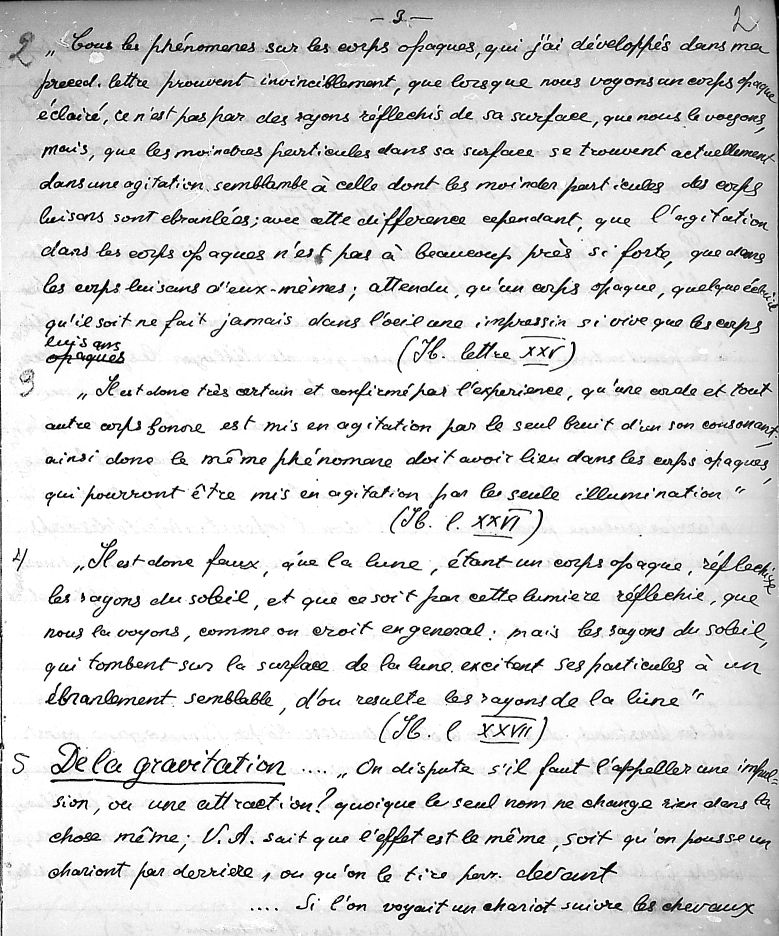 — 3 — 2
2 „Tous les phénomenes sur les corps opaques, qui j'ai développés dans ma
preced. lettre prouvent invinciblement, que lorsque nous voyons un corps opaque
éclairé, ce n'est pas par des rayons réflechis de sa surface, que nous le voyons,
mais, que les moinbres particules dans sa surface se trouvent actuellement
dans une agitation semblambe à celle dont les moinder particules des corps
luisans sont ebranlées; avec cette difference cependant, que l'agitation
dans les corps opaques n'est pas à beaucoup près si forte, que dans
les corps luisans d'eux-mêmes; attendu, qu'un corps opaque, quelque éclairé
qu'il soit ne fait jamais dans l'oeil une impressin si vive que les corps
luisans
opaques (Ib. lettre XXV)
3 „Il est donc très certain et confirmé par l'experience, qu'une corde et tout
autre corps sonore est mis en agitation par le seul bruit d'un son consonant,
ainsi donc le même phénomene doit avoir lieu dans les corps opaques,
qui pourront être mis en agitation par la seule illumination"
(Ib. l. XXVI)
4 „Il est donc faux, que la lune, étant un corps opaque, réflechisse
les rayons du soleil, et que ce soit par cette lumiere réflechie, que
nous la voyons, comme on croit en general: mais les rayons du soleil,
qui tombent sur la surface de la lune excitent ses particules à un
ébranlement semblable, d'ou resulte les rayons de la lune"
(Ib. l XXVII)
5 De la gravitation .... „On dispute s'il faut l'appeller une impul=
sion, ou une attraction? quoique le seul nom ne change rien dans la
chose même; V. A. sait que l'effet est le même, soit qu'on pousse un
chariont par derriere, ou qu'on le tire par devant
.... Si l'on voyait un chariot suivre les chevaux